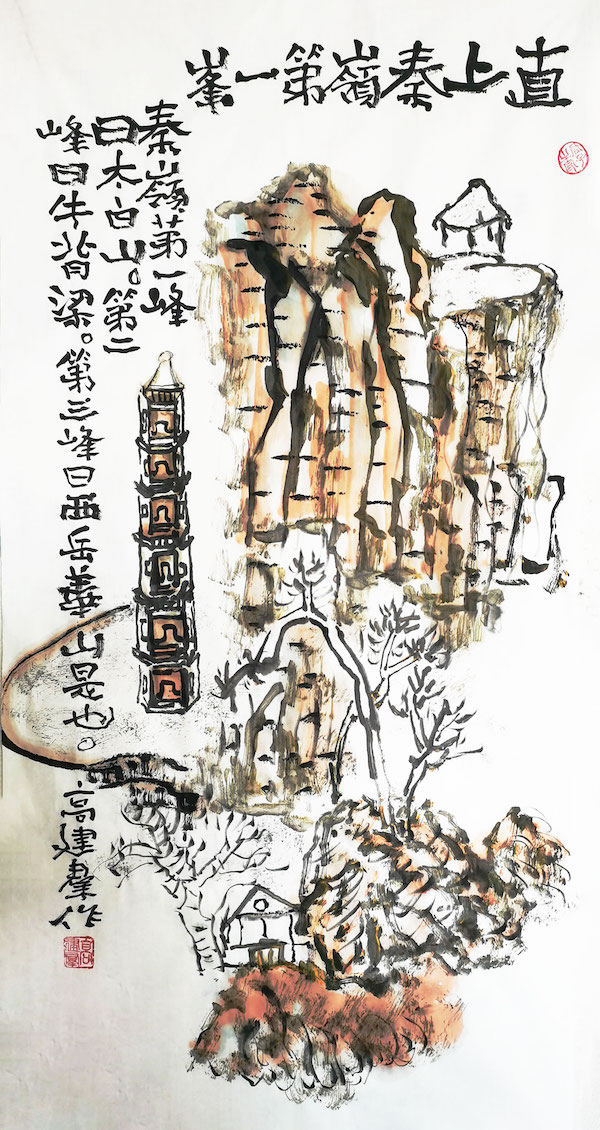 直上秦嶺第一峯
秦嶺第一峰
曰太白山。第二
峰曰牛背梁。第三峰曰西岳華山是也。
高建羣作